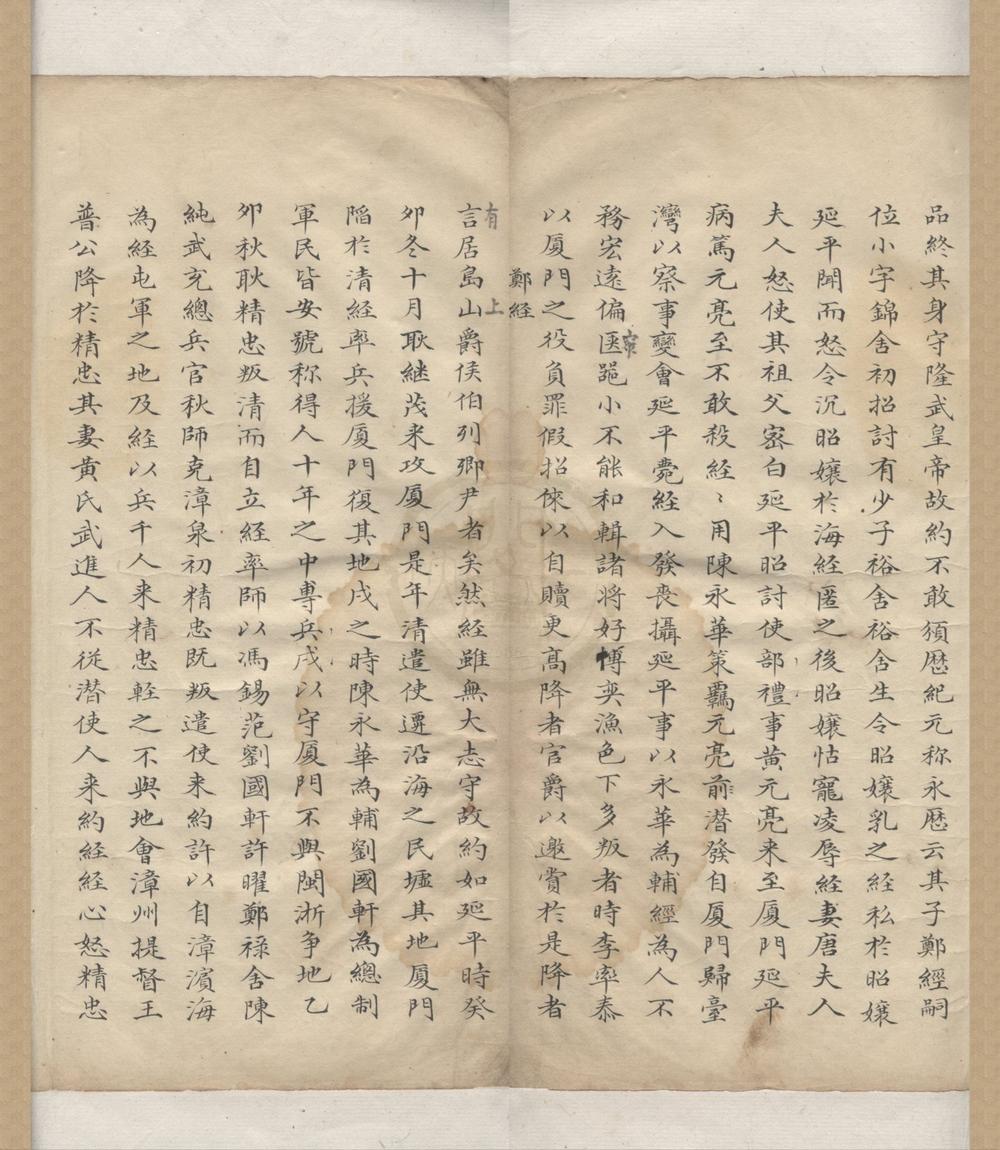 品終其身守隆武皇帝故約不敢須厯紀元称永厯云其子鄭經嗣
位小字錦舍初招討有少子裕舍裕舍生令昭嬢乳之経私於昭嬢
延平聞而怒令沉昭嬢於海経匿之後昭嬢怙寵凌辱経妻唐夫人
夫人怒使其祖父宻白延平昭討使部禮事黄元亮来至厦門延平
病篤元亮至不敢殺経〻用陳永華策覊元亮前潜發自厦門歸臺
灣以察事變會延平薨経入發丧攝延平事以永華為輔經為人不
務宏遠偏匧䢼小不能和輯諸将好博奕漁色下多叛者時李率泰
窄
以厦門之役負罪假招倈以自贖更高降者官爵以邀賞於是降者
鄭経
有 上
言居島山爵侯伯列卿尹者矣然経雖無大志守故約如延平時癸
夘冬十月耿継茂来攻厦門是年清遣使遷沿海之民墟其地厦門
䧟於清経率兵援厦門復其地戌之時陳永華為輔劉國軒為總制
軍民皆安號称得人十年之中専兵戌以守厦門不與閩浙争地乙
夘秋耿精忠叛清而自立経率師以馮錫范劉國軒許曜鄭祿舍陳
純武充總兵官秋師克漳泉初精忠既叛遣使来約許以自漳濱海
為経屯軍之地及経以兵千人来精忠軽之不與地會漳州提督王
普公降於精忠其妻黄氏武進人不従潜使人来約経経心怒精忠